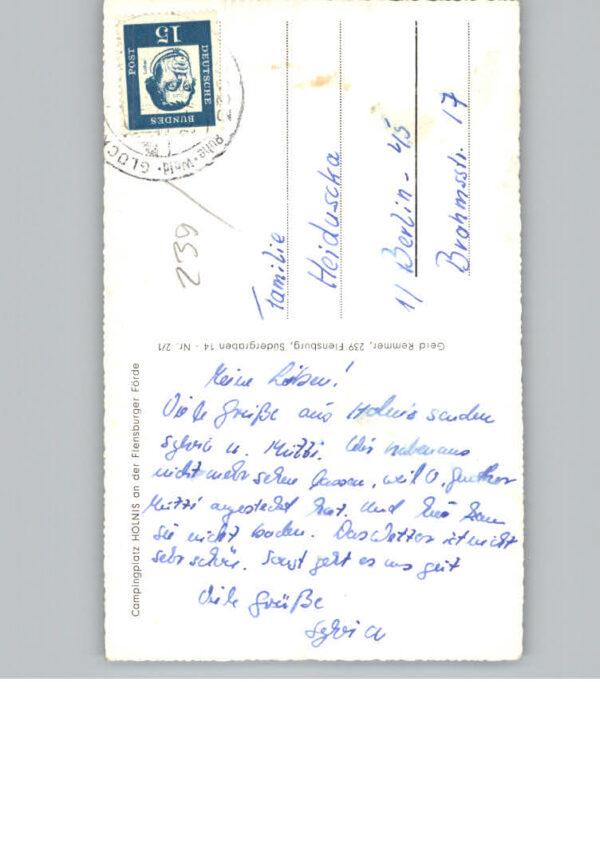 15
DEUTSCHE
BUNDES
POST
Ruhe · Wald · GLÜC
239
Familie
Hejduschka
1/ Berlin - 45
Brahmsstr. 17
Gerd Remmer, 239 Flensburg, Südergraben 14 - Nr. 2/1
Campingplatz HOLNIS an der Flensburger Förde
Meine Lieben!
Viele Grüße aus Holnis senden
Sylvia u. Mutti. Wir haben uns
nicht mehr sehen lassen, weil O. Günther
Mutti angesteckt hat. Und kann
sie nicht baden. Das Wetter ist nicht
sehr schön. Sonst geht es uns gut
Viele Grüße
Sylvia